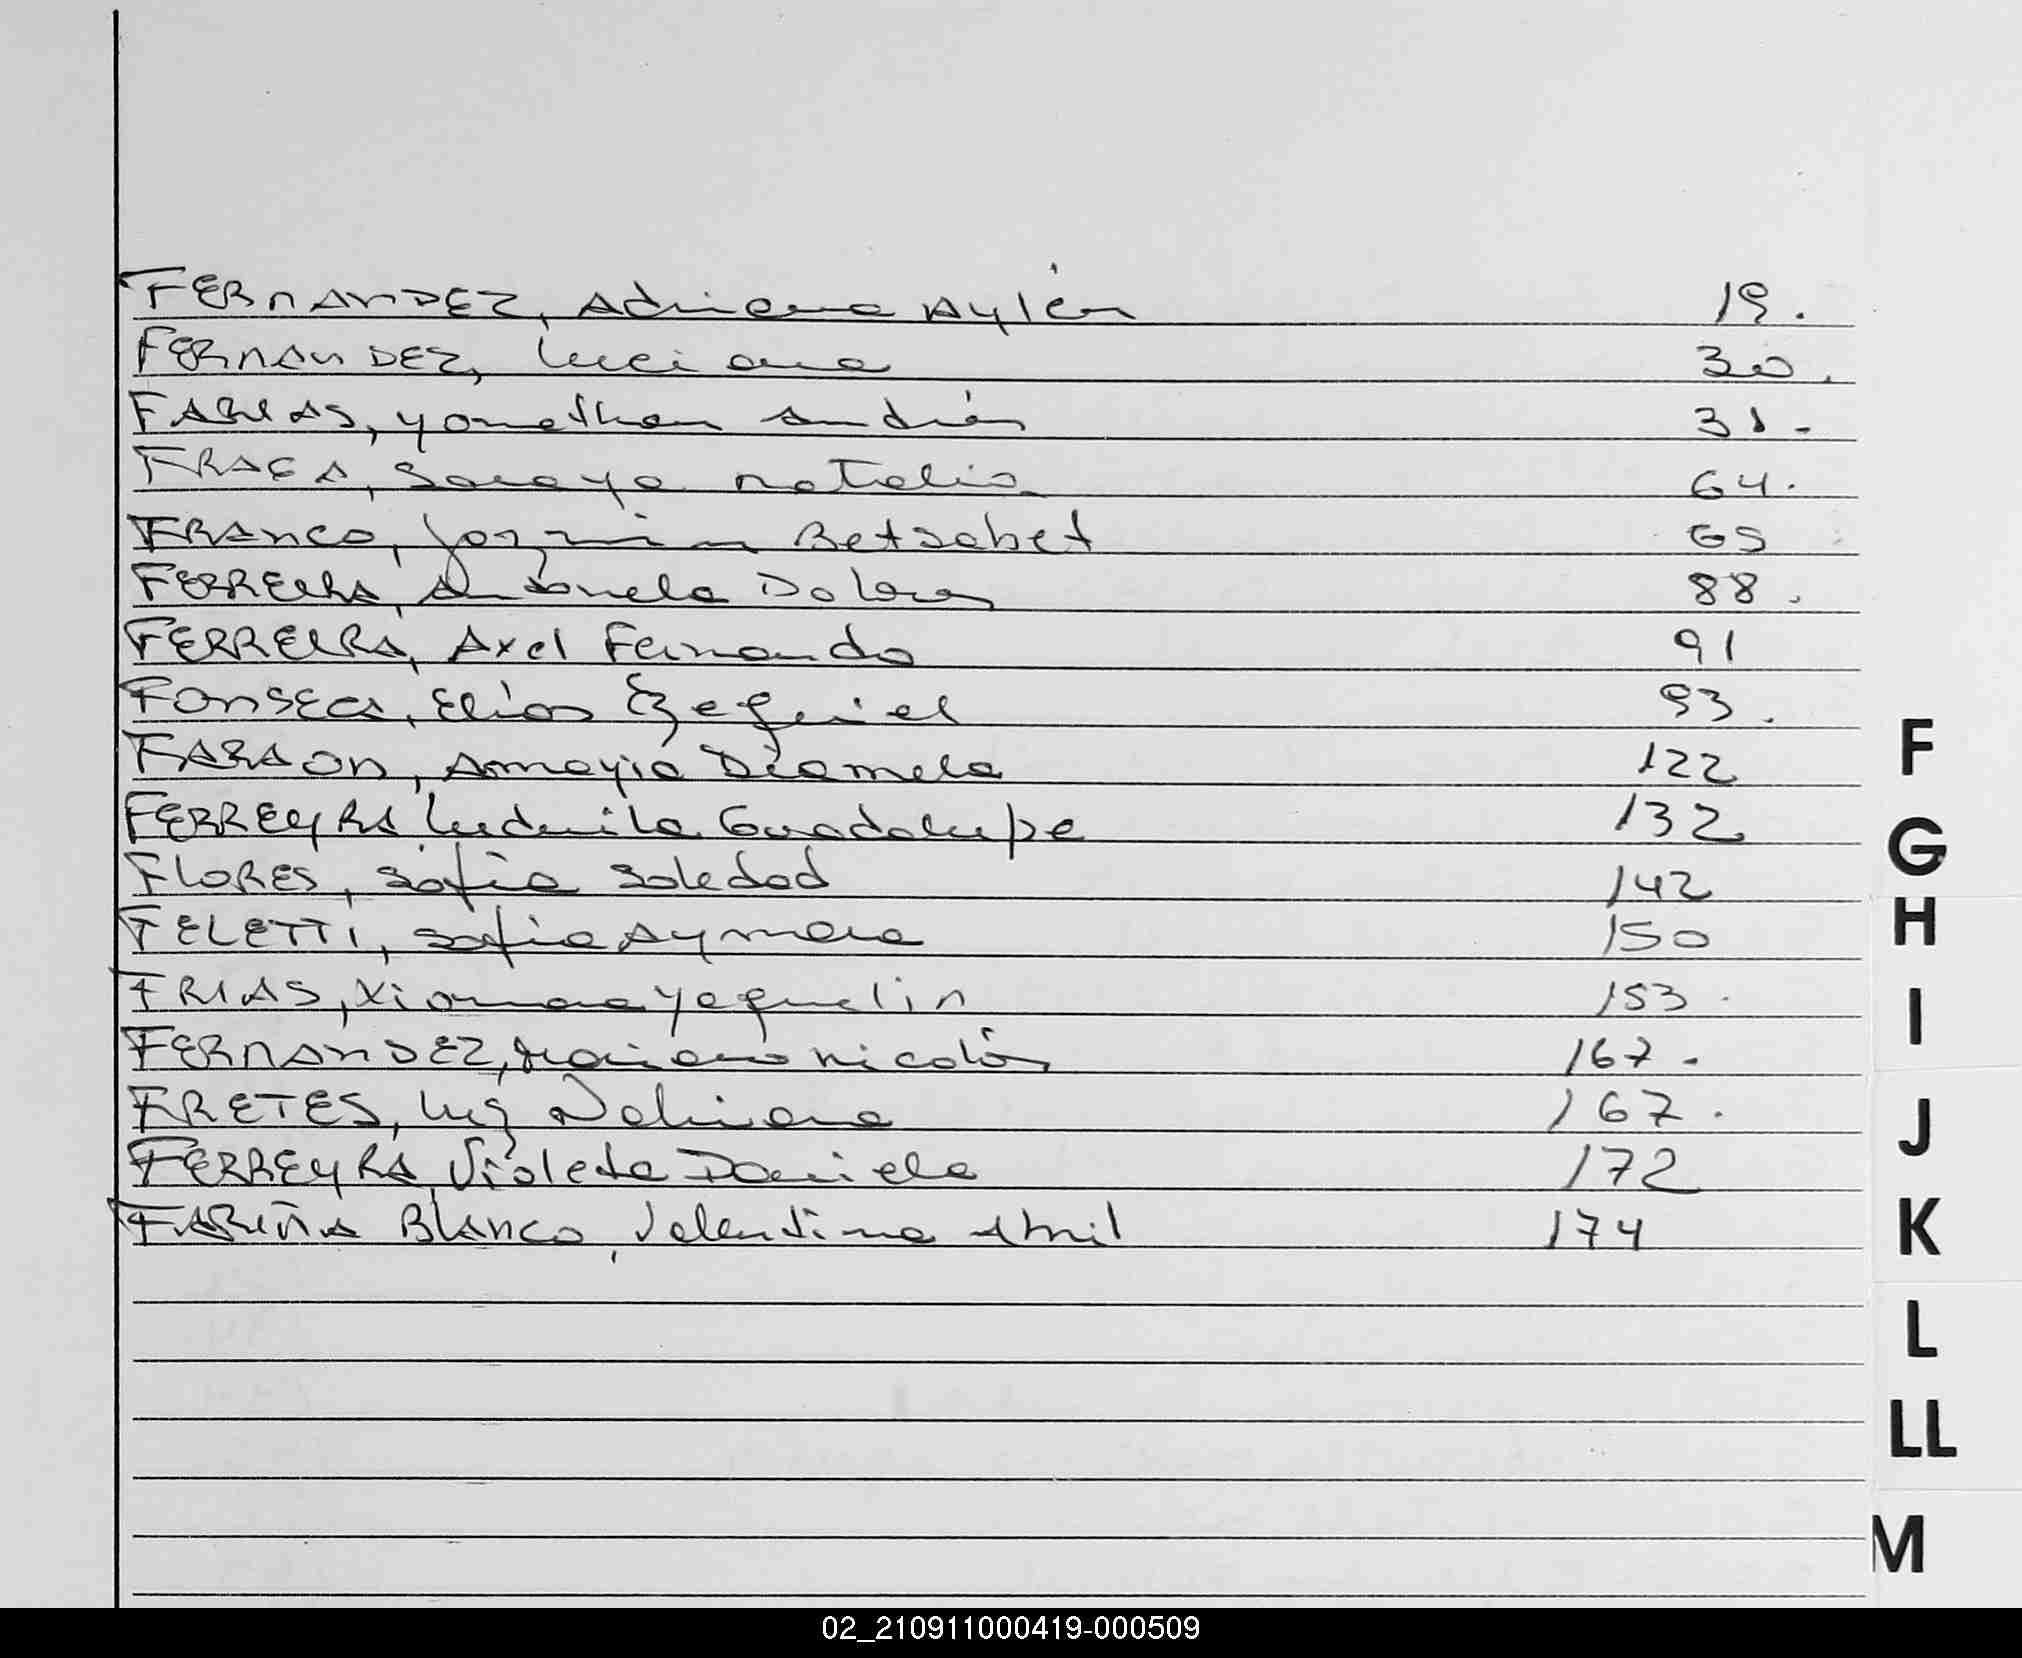 FERNANDEZ, Adriana Aylén 19.
FERNANDEZ, Luciana 30.
FARIAS, Yonathan Andrés 31.
FRAGA, Soraya Natalia 64.
FRANCO, Jazmin Betsabet 65
FERREIRA, Antonela Dolores 88.
FERREIRA, Axel Fernando 91
FONSECA, Elías Ezequiel 93.
FARAON, Amayia Diamela 122
FERREYRA Ludmila Guadalupe 132
FLORES, Sofía Soledad 142
FELETTI, Sofia Aymara 150
FRIAS, Xiomara Yaquelin 153.
FERNANDEZ, Mariano Nicolás 167.
FRETES, Luz 167.
FERREYRA, Violeta Daniela 172
FARIÑA BLANCO, Valentina Abril 174
F
G
H
I
J
K
L
LL
M
02_210911000419-000509